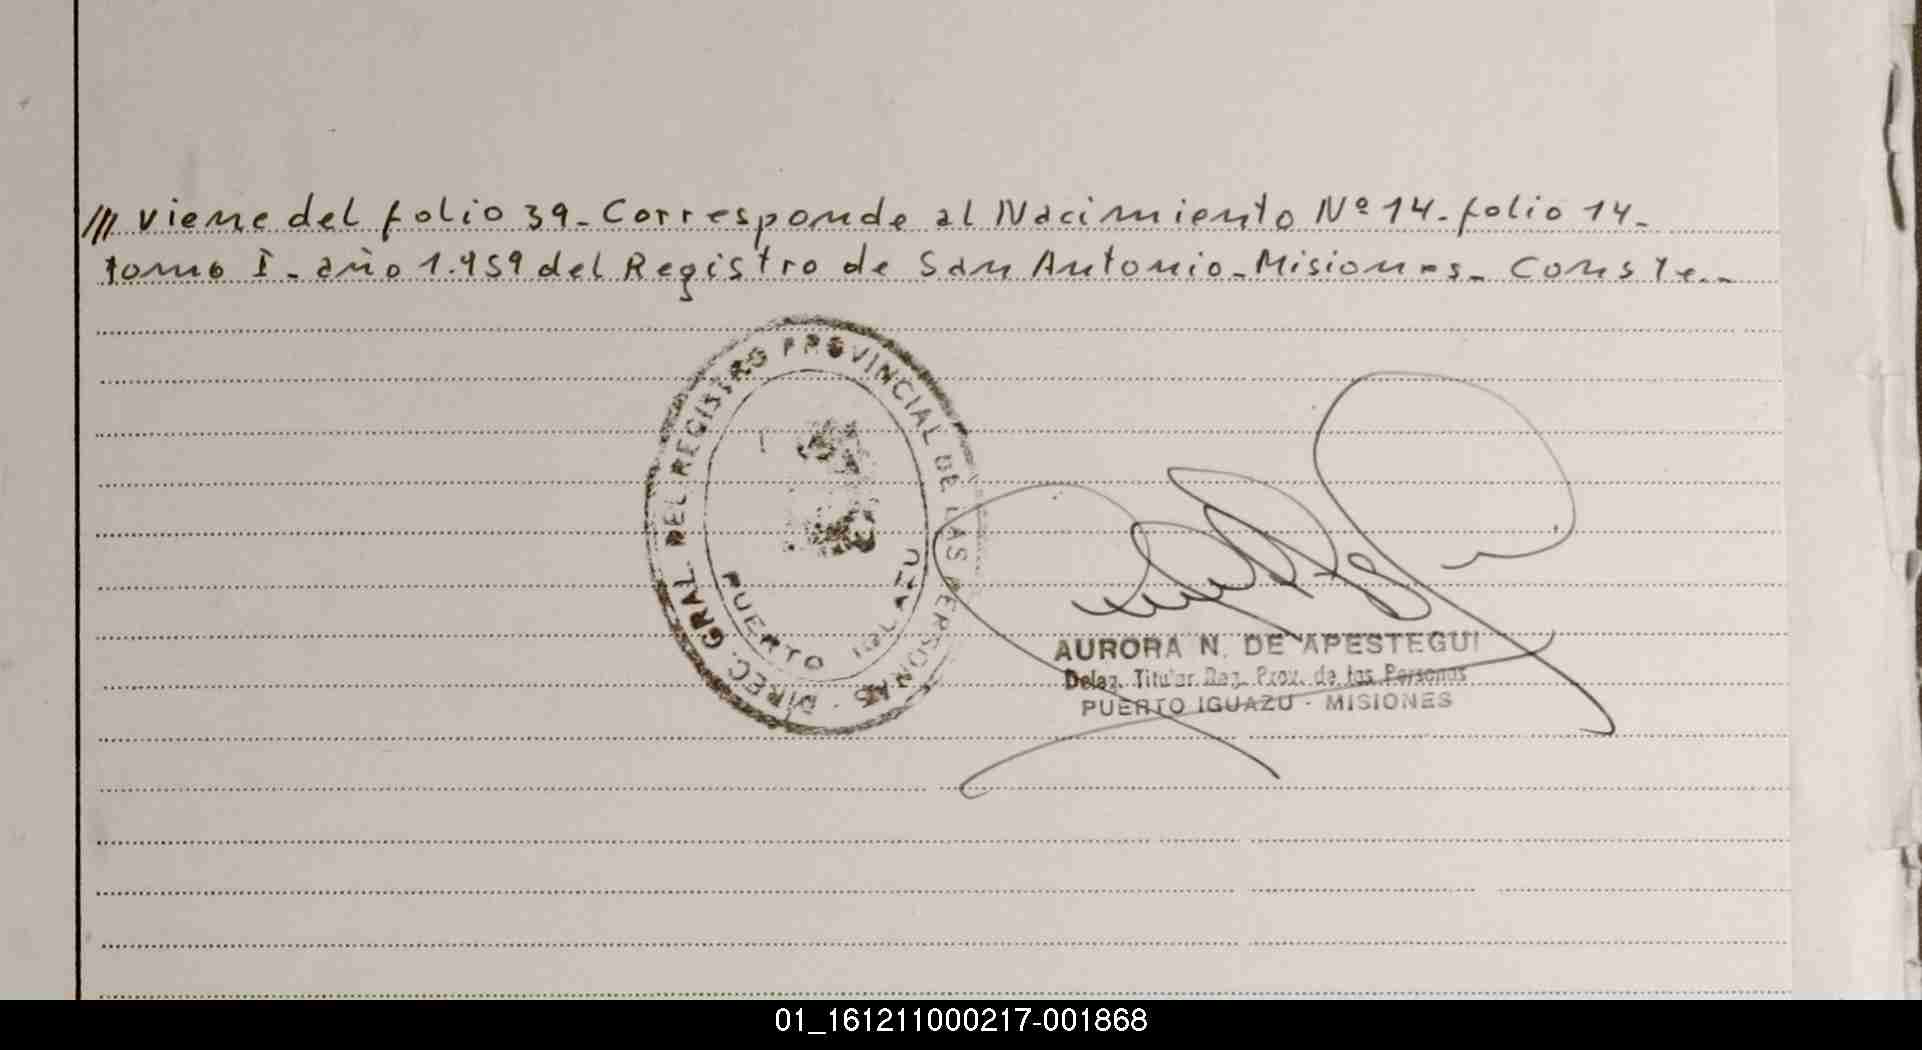 /// viene del folio 39_ Corresponde al Nacimiento Nº 14. folio 14_
tomo I _ año 1.959 del Registro de San Antonio_Misiones_ Conste._
DIREC. GRAL. DEL REGISTRO PROVINCIAL DE LAS PERSONAS
PUERTO IGUAZU
AURORA N. DE APESTEGUI
Deleg. Titular Reg. Prov. de las Personas
PUERTO IGUAZU - MISIONES
01_161211000217-001868